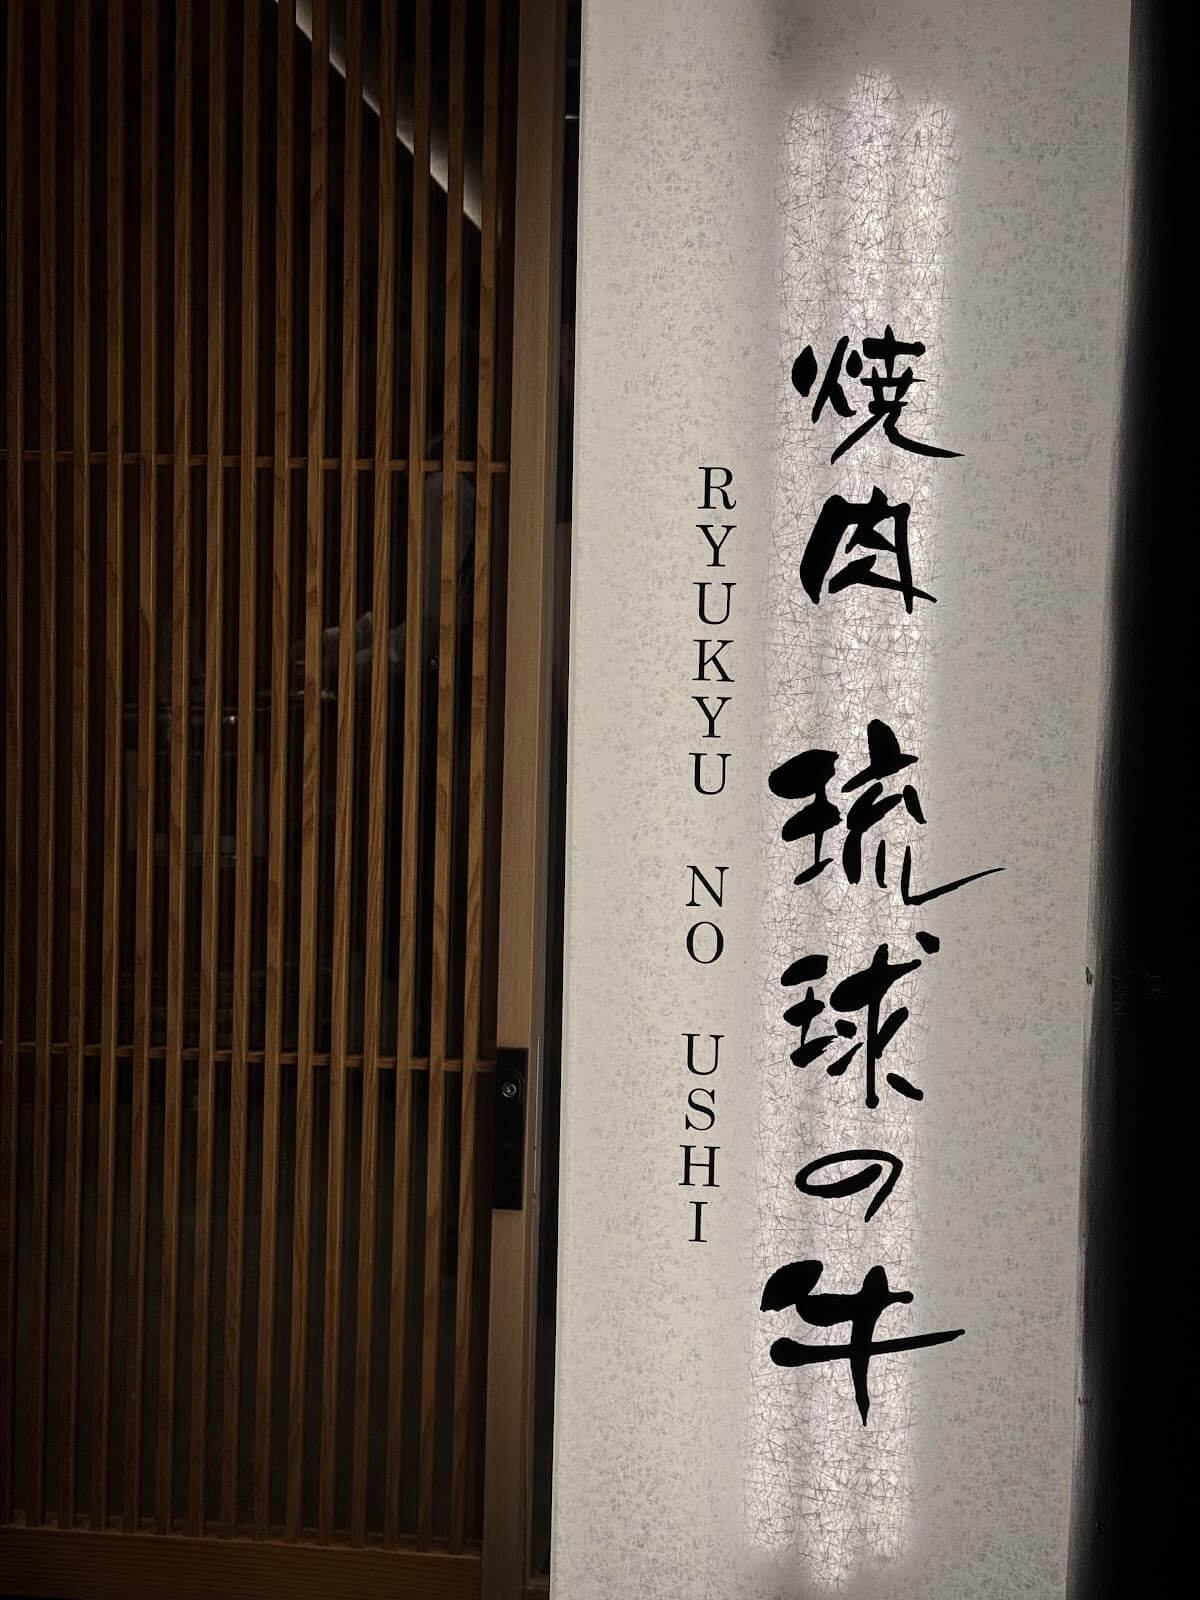 焼肉 琉球の牛
RYUKYU NO USHI